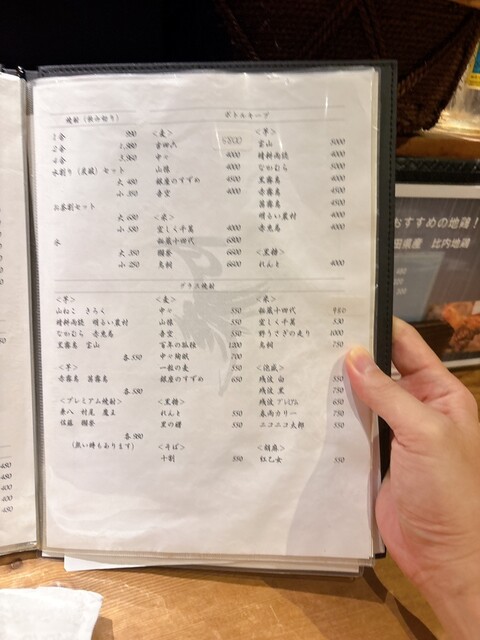 焼酎 (飲み切り)
1合 990
2合 1,980
4合 3,960
水割り (炭酸) セット
大 480
小 350
お茶割セット
大 680
小 580
氷
大 350
小 250
ボトルキープ
<麦>
吉四六
中々 4000
山猿 4000
銀座のすずめ 4500
吾空 4000
<米>
宜しく千萬 4000
秘蔵十四代 6800
獺祭 6600
鳥飼 6600
<芋>
富山 5000
晴耕雨読 4000
なかむら 5000
黒霧島 4000
赤霧島 4500
茜霧島 4500
明るい農村 4000
赤兎馬 4000
<黒糖>
れんと 4000
グラス焼酎
<芋>
山ねこ きろく
晴耕雨読 明るい農村
なかむら 赤兎馬
黒霧島 富山
各 550
<芋>
赤霧島 茜霧島
各 580
<プレミアム焼酎>
兼八 村尾 魔王
佐藤 獺祭
各 980
(無い時もあります)
<麦>
中々 550
山猿 550
吾空 550
百年の孤独 1200
中々 700
一粒の麦 550
銀座のすずめ 650
<黒糖>
れんと 550
里の曙 550
<そば>
十割 550
<米>
秘蔵十四代 980
宜しく千萬 530
野うさぎの走り 1000
鳥飼 750
<泡盛>
残波 白 550
残波 黒 750
残波 プレミアム 650
春雨カリー 750
ニコニコ太郎 550
<胡麻>
紅乙女 550
480
480
400
400
450
おすすめの地鶏!
田県産 比内地鶏